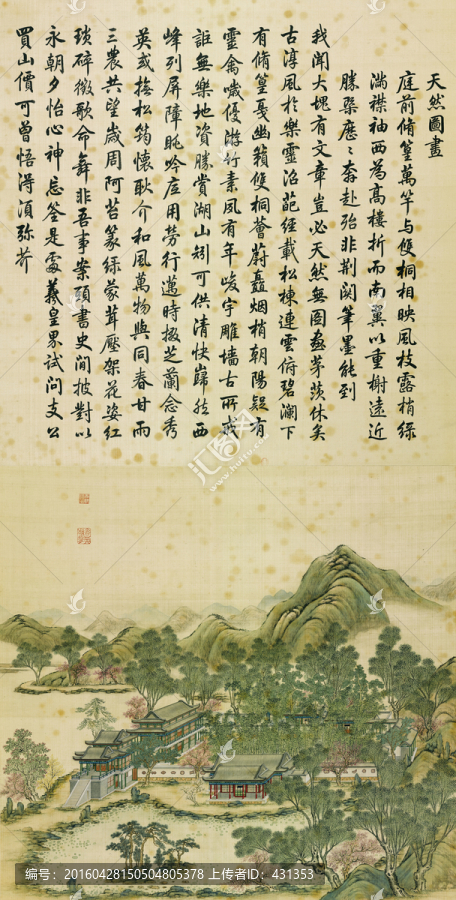 天然圖畫
庭前脩篁萬竿與雙桐相映風枝露梢綠
滿襟袖西為高樓折而南翼以重榭遠近
勝槩歴〻奔赴殆非荊関筆墨能到
我聞大塊有文章豈必天然無圖畫茅茨休矣
古淳風於樂靈沼葩經載松棟連雲俯碧瀾下
有脩篁戛幽籟雙桐薈蔚矗烟梢朝陽疑有
靈禽噦優游竹素夙有年峻宇雕墻古所戒
詎無樂地資勝賞湖山矧可供清快巋然西
峰列屏障眺吟底用勞行邁時掇芝蘭念秀
英或撫松筠懷耿介和風萬物與同春甘雨
三農共望歲周阿苔篆綠蒙茸壓架花姿紅
瑣碎徵歌命舞非吾事案頭書史閒披對以
永朝夕怡心神忘筌是處羲皇界試問支公
買山價可曾悟得須彌芥
汇图网
编号：20160428150504805378 上传者ID：431353